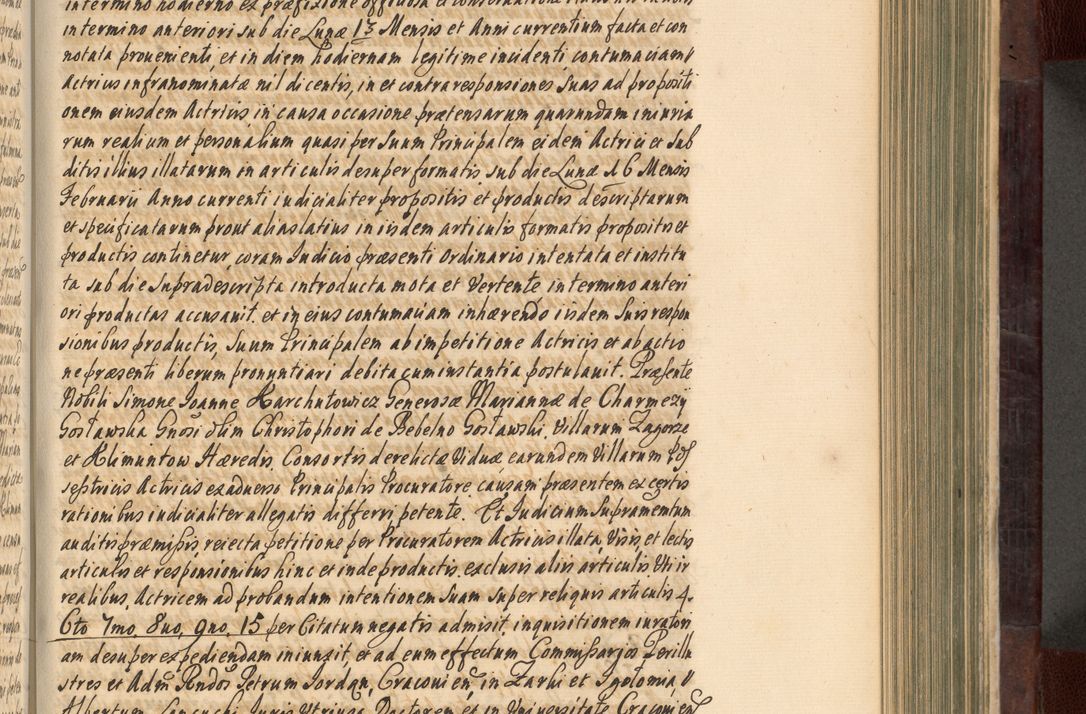 intermino hodierno ex præfixione
intermino anteriori sub die Lunæ 13 Mensis et Anni currentium facta et con
notata proueniente, et in diem hodiernam legitime incidenti contumaciam
Actricis infranominatæ nil dicentis, in et contra responsiones suas ad propositi
onem eiusdem Actricis, in causa occasione prætensarum quarundam iniuria
rum realium et personalium quasi per suum Principalem eidem Actrici et sub
ditis illius illatarum in articulis desuper formatis, sub die Lunæ 16 Mensis
Februarii Anno currenti iudicialiter propositis et productis descriptarum
et specificatarum prout alias latius in iisdem articulis formatis propositis et
productis continetur, coram Iudicio præsenti Ordinario intentata et institu
ta sub die supradescripta introducta mota et Vertente in termino anteri
ori productas accusauit. et in eius contumaciam inhærendo iisdem suis respon
sionibus productis, suum Principalem ab impetitione Actricis et ab actio
ne præsenti liberum pronuntiari debita cum instantia postulauit. Præsente
Nobili Simone Ioanne Harchutowicz Generosæ Mariannæ de Charmezy
Gosławska Gnosi olim Christophori de Bebelno Gosławski, Villarum Zagorze
et Klimuntow Hæredis, Consortis derelictæ Viduæ, earundem Villarum
Actricis ex aduerso Principalis Procuratore causam præsentem ex certis
rationibus iudicialiter allegatis differri petente. Et Iudicium supramentum
auditis præmissis, reiecta petitione per Procuratorem Actricis illata, Visis et lectis
articulis et responsionibus hinc et inde productis, exclusis aliis articulis, Vti ir
realibus, Actricem ad probandum intentionem suam super reliquis articulis 4.
6to 7mo. 8uo, 9no. 15 per Citatum negatis admisit, inquisitionem iuratori
am desuper expediendam iniunxit, et ad eum effectum Commissarios Perillu
stres et Adm Rndos Petrum Iordan, Cracouien, in Zarki et Igołomia
Albertum Iuris Vtriusq Doctorem et in Vniversitate Cracouien